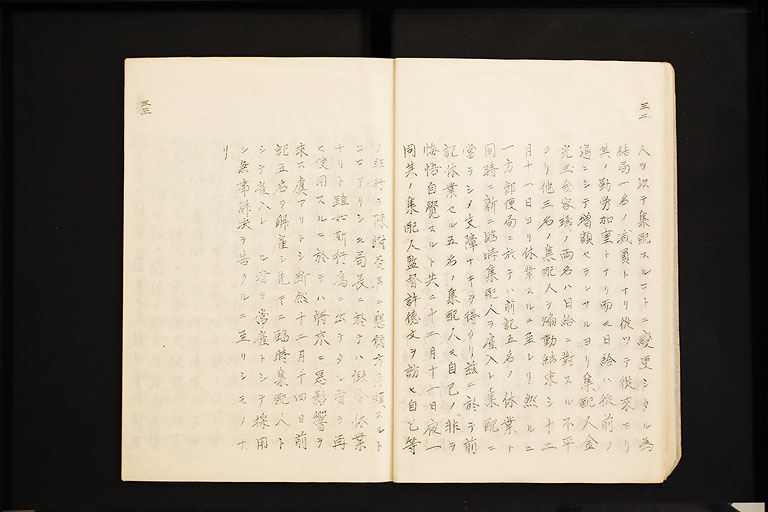 三二
人ヲ以テ集配スルコトニ変更シタル為
結局一名ノ減員トナリ従ツテ従来ヨリ
其ノ勤労加重トナリ而モ日給ハ従前ノ
通ニシテ増額セラレサルヨリ集配人金
光玉金容璿ノ両名ハ日給ニ対スル不平
ヨリ他三名ノ集配人ヲ煽動結束シ十二
月十一日ヨリ休業スルニ至レリ然ルニ
一方郵便局ニ於テハ前記五名ノ休業ト
同時ニ新ニ臨時集配人ヲ雇入レ集配ニ
当ラシメ支障ナキヲ得タリ茲ニ於テ前
記休業セル五名ノ集配人モ自己ノ非ヲ
悔悟自覚スルト共ニ十二月十一日夜一
同其ノ集配人監督許徳文ヲ訪ヒ自己等
三三
ノ非行ヲ陳謝局長ニ懇願方依頼スルト
コロアリシモ局長ニ於テハ仮令休業
ナリト雖如斯行為ニ出テタル者ヲ再
ヒ使用スルニ於テハ将来ニ悪影響ヲ
来ス虞アリトシ断然十二月十四日前
記五名ヲ解雇シ先キニ臨時集配人ト
シテ雇入レ
者ヲ常雇トシテ採用
シ無事解決ヲ告クルニ至リシモノナ
リ